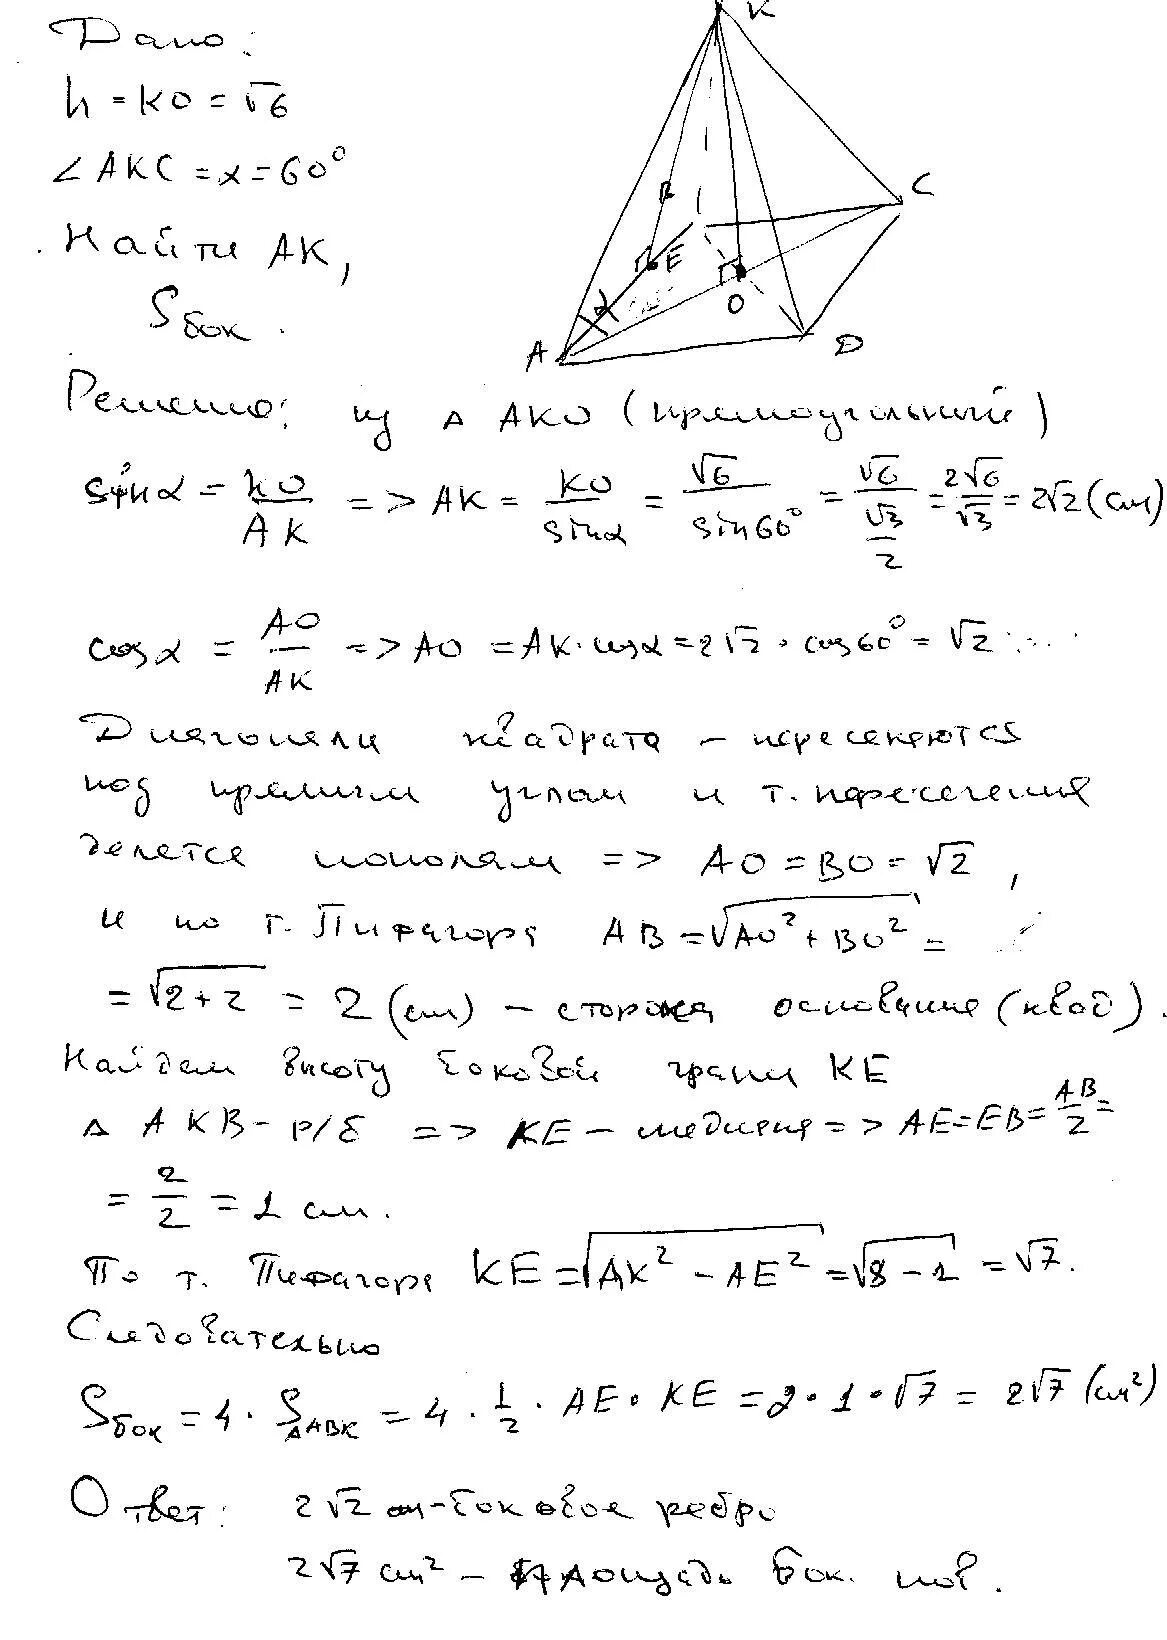 Дано:
h = KO = √6
∠AKC = α = 60°
Найти AK,
Sбок.
K
C
B
E
α
O
A
D
Решение: из Δ AKO (прямоугольный)
sin α = KO/AK => AK = KO/sin α = √6/sin 60° = √6/(√3/2) = 2√6/√3 = 2√2 (см)
cos α = AO/AK => AO = AK · cos α = 2√2 · cos 60° = √2
Диагонали квадрата – пересекаются
под прямым углом и т. пересечения
делятся пополам => AO = BO = √2 ,
и по т. Пифагора AB = √(AO² + BO²) =
= √(2+2) = 2 (см) – сторона основание (квад).
Найдем высоту боковой грани KE
Δ AKB – р/б => KE – медиана => AE = EB = AB/2 =
= 2/2 = 1 см.
По т. Пифагора KE = √(AK² – AE²) = √(8 – 1) = √7.
Следовательно
Sбок = 4 · SΔABK = 4 · 1/2 · AE · KE = 2 · 1 · √7 = 2√7 (см²)
Ответ: 2√2 см – боковое ребро
2√7 см² – площадь бок. пов.